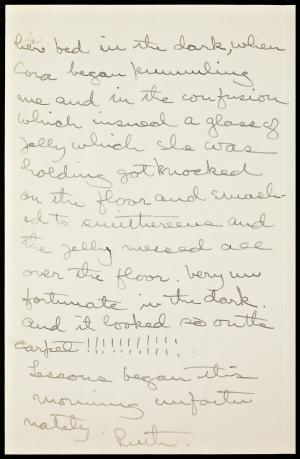 her bed in the dark, when
Cora began pummeling
me and in the confusion
which insued a glass of
jelly which she was
holding got knocked
on the floor and smash-
ed to smithereens and
the jelly messed all
over the floor. Very un
fortunate in the dark.
and it looked so on the
carpet !!!!!!!!!!
Lessons began this
morning unfortu
nately. Ruth.